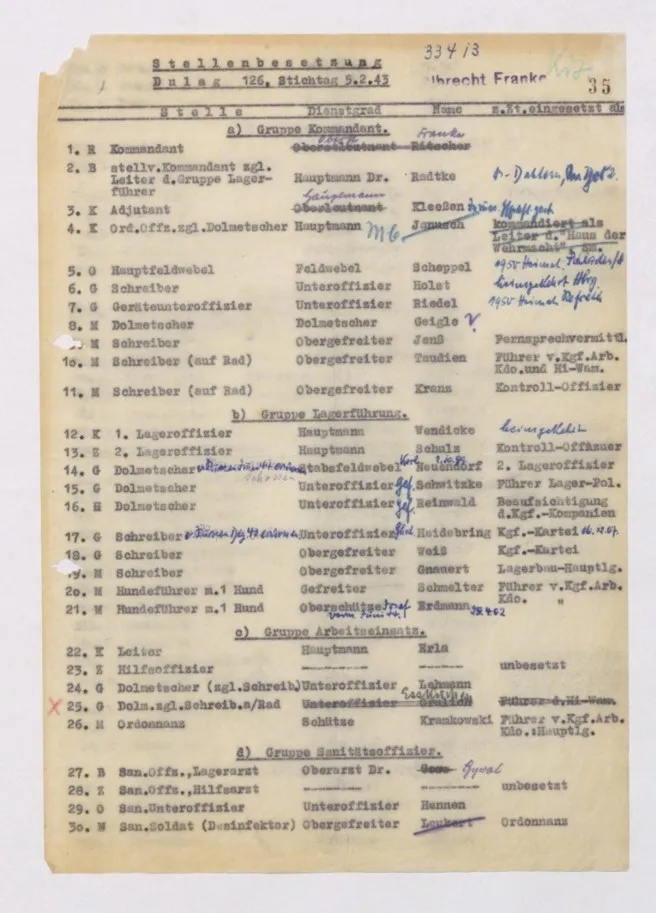 334 13
Stellenbesetzung
Dulag 126, Stichtag 5.2.43
lbrecht Franke
35
Stelle Dienstgrad Name z.Zt.eingesetzt als
a) Gruppe Kommandant.
Franke
1. R Kommandant Oberstleutnant Ritscher
2. B stellv.Kommandant zgl.
Leiter d.Gruppe Lager- Hauptmann Dr. Radtke
führer
Hauptmann
3. K Adjutant Oberleutnant Kleeßen
4. K Ord.Offz.zgl.Dolmetscher Hauptmann Janusch kommandiert als
Leiter d."Haus der
Wehrmacht"
5. G Hauptfeldwebel Feldwebel Scheppel 1950 Heimk.
6. G Schreiber Unteroffizier Holst heimgekehrt Hbrg.
7. G Geräteunteroffizier Unteroffizier Riedel 1950
8. M Dolmetscher Dolmetscher Geigle
9. M Schreiber Obergefreiter Jenß Fernsprechvermittl.
1o. M Schreiber (auf Rad) Obergefreiter Taudien Führer v.Kgf.Arb.
Kdo.und Hi-Wam.
11. M Schreiber (auf Rad) Obergefreiter Krans Kontroll-Offizier
b) Gruppe Lagerführung.
12. K 1. Lageroffizier Hauptmann Wendicke heimgekehrt
13. Z 2. Lageroffizier Hauptmann Schulz Kontroll-Offizuer
14. G Dolmetscher Stabsfeldwebel Neuendorf 2. Lageroffizier
15. G Dolmetscher Unteroffizier gef. Schwitzke Führer Lager-Pol.
16. M Dolmetscher Unteroffizier gef. Reinwald Beaufsichtigung
d.Kgf.-Kompanien
17. G Schreiber Unteroffizier Heidebring Kgf.-Kartei
18. G Schreiber Obergefreiter Weiß Kgf.-Kartei
19. M Schreiber Obergefreiter Gnauert Lagerbau-Hauptlg.
2o. M Hundeführer m.1 Hund Gefreiter Schmelter Führer v.Kgf.Arb.
Kdo.
21. M Hundeführer m.1 Hund Oberschütze Josef Erdmann "
c) Gruppe Arbeitseinsatz.
22. K Leiter Hauptmann Erla
23. Z Hilfsoffizier -------- ----- unbesetzt
24. G Dolmetscher (zgl.Schreib) Unteroffizier Lehmann
25. G Dolm.zgl.Schreib.a/Rad Unteroffizier Führer d.Hi-Wam.
26. M Ordonnanz Schütze Kramkowski Führer v.Kgf.Arb.
Kdo.:Hauptlg.
d) Gruppe Sanitätsoffizier.
27. B San.Offz.,Lagerarzt Oberarzt Dr.
28. Z San.Offz.,Hilfsarzt -------- ----- unbesetzt
29. O San.Unteroffizier Unteroffizier Hennen
3o. M San.Soldat (Desinfektor) Obergefreiter Leukert Ordonnanz